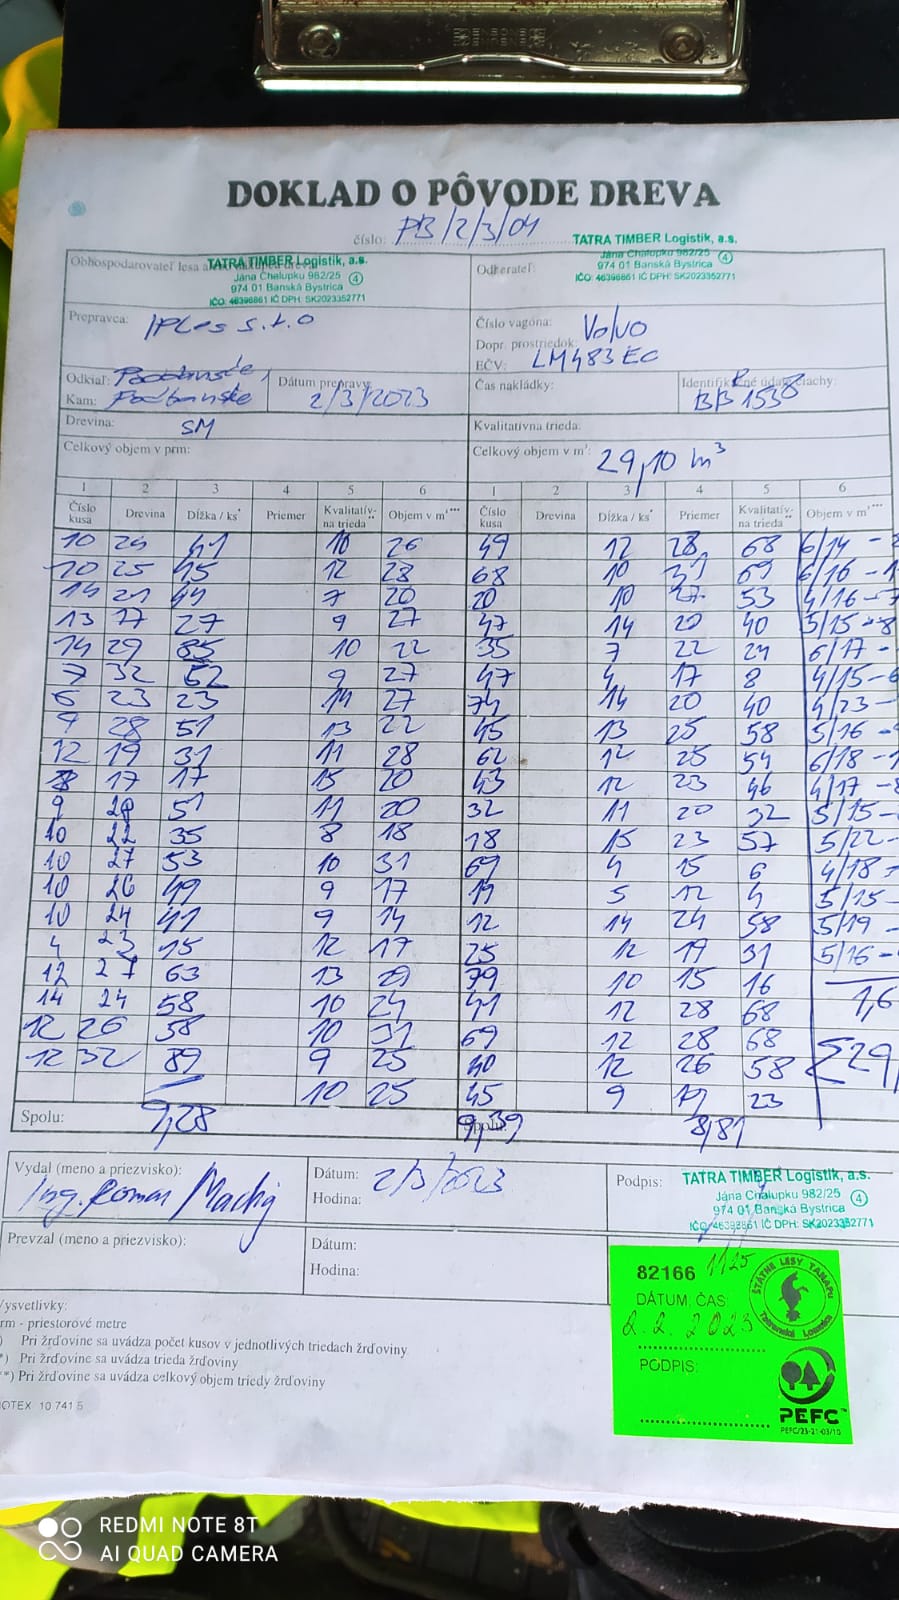 DOKLAD O PÔVODE DREVA
číslo: PB/2/3/04
TATRA TIMBER Logistik, a.s.
Jána Chalupku 982/25 4
974 01 Banská Bystrica
IČO: 46398861 IČ DPH: SK2023352771
Obhospodarovateľ lesa
TATRA TIMBER Logistik, a.s.
Jána Chalupku 982/25 4
974 01 Banská Bystrica
IČO: 46398861 IČ DPH: SK2023352771
Odberateľ:
Prepravca: IPLes s.r.o
Číslo vagóna: Volvo
Dopr. prostriedok:
EČV: LM483EC
Odkiaľ: Podbanske
Kam: Podbanske
Dátum prepravy: 2/3/2023
Čas nakládky:
BB 1538
Drevina: SM
Kvalitatívna trieda:
Celkový objem v prm:
Celkový objem v m³: 29,10 m³
1 2 3 4 5 6 1 2 3 4 5 6
Číslo kusa Drevina Dĺžka / ks* Priemer Kvalitatív-na trieda** Objem v m³*** Číslo kusa Drevina Dĺžka / ks* Priemer Kvalitatív-na trieda** Objem v m³***
10 24 41 10 26 49 12 28 68 6/14
10 25 45 12 28 68 10 31 69 6/16
14 21 44 7 20 20 10 27 53 4/16
13 17 27 9 27 47 14 20 40 5/15
14 29 85 10 22 35 7 22 24 6/17
7 32 52 9 27 47 4 17 8 4/15
6 23 23 14 27 74 14 20 40 4/23
9 28 51 13 22 45 13 25 58 5/16
12 19 31 11 28 62 12 25 54 6/18
8 17 17 15 20 43 12 23 46 4/17
9 28 51 11 20 32 11 20 32 5/15
10 22 35 8 18 18 15 23 57 5/22
10 27 53 10 31 69 4 15 6 4/18
10 26 49 9 17 19 5 12 4 5/15
10 24 41 9 14 12 14 24 58 5/19
4 23 15 12 17 25 12 19 31 5/16
12 27 63 13 29 79 10 15 16
14 24 58 10 24 41 12 28 68 1,6
12 26 58 10 31 69 12 28 68
12 32 89 9 25 40 12 26 58 Σ29
10 25 45 9 19 23
Spolu: 9,28 9,39 8,81
Vydal (meno a priezvisko):
Ing. Roman Machy
Dátum: 2/3/2023
Hodina:
Podpis:
TATRA TIMBER Logistik, a.s.
Jána Chalupku 982/25 4
974 01 Banská Bystrica
IČO: 46398861 IČ DPH: SK2023352771
Prevzal (meno a priezvisko):
Dátum:
Hodina:
82166 1125
DÁTUM, ČAS
2.2.2023
PODPIS:
ŠTÁTNE LESY TANAPu
Tatranská Lomnica
PEFC™
PEFC/23-21-03/10
Vysvetlivky:
rm - priestorové metre
) Pri žrďovine sa uvádza počet kusov v jednotlivých triedach žrďoviny
*) Pri žrďovine sa uvádza trieda žrďoviny
**) Pri žrďovine sa uvádza celkový objem triedy žrďoviny
OTEX 10 741 5
REDMI NOTE 8T
AI QUAD CAMERA